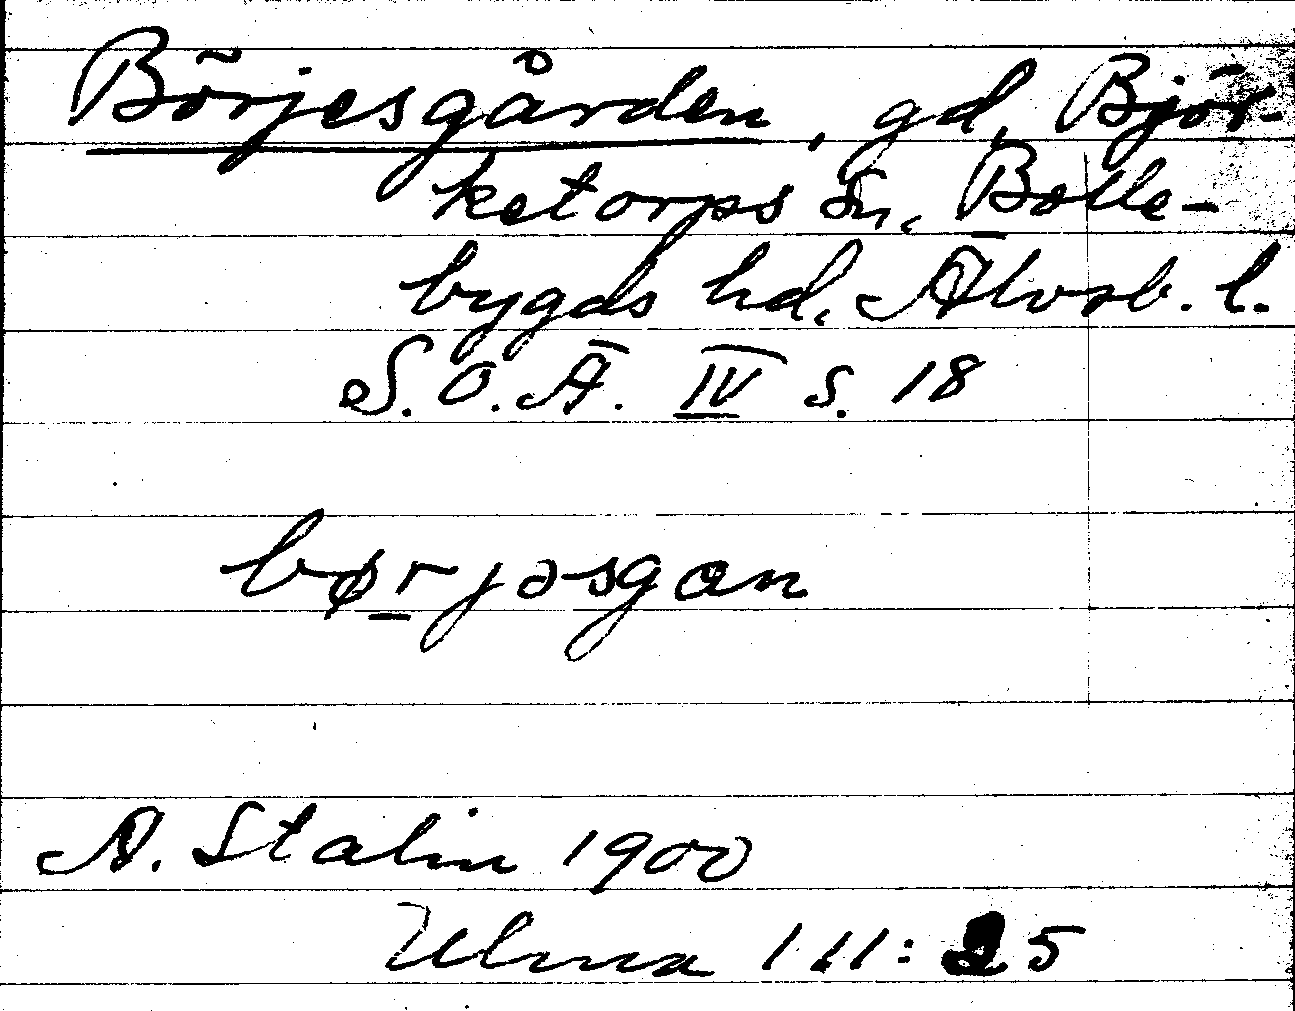 Börjesgården, gd, Björ-
ketorps sn, Bolle-
bygds hd. Älvsb. l.
S.O.Ä. IV s. 18
børjəsgan
A. Stalin 1900
Ulma 111:25